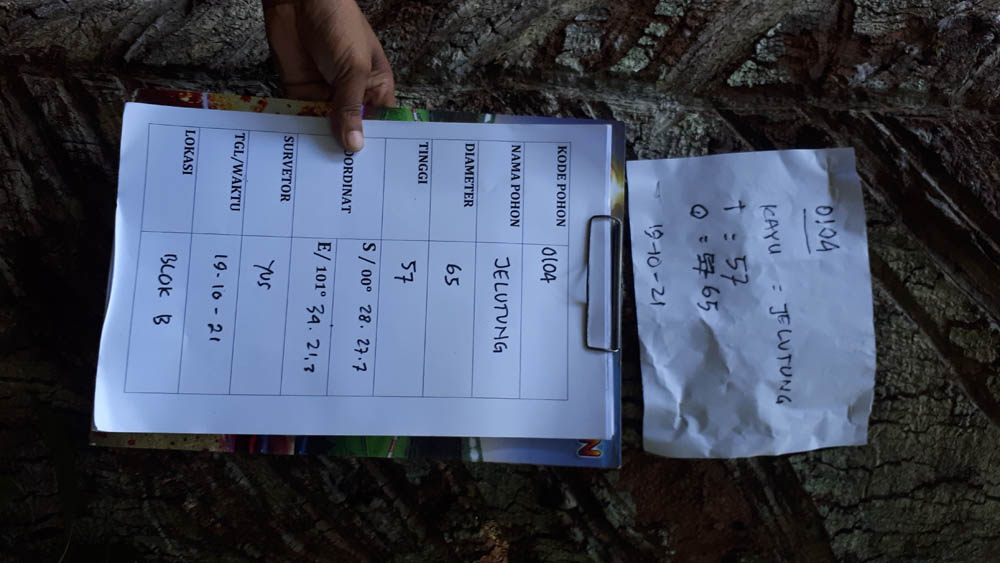 0104
KAYU = JELUTUNG
T = 57
Q = 57 65
19-10-21
N
KODE POHON 0104
NAMA POHON JELUTUNG
DIAMETER 65
TINGGI 57
OORDINAT S / 00° 28. 27.7
E/ 101° 34. 21.3
SURVETOR YUS
TGL/WAKTU 19-10-21
LOKASI BLOK B